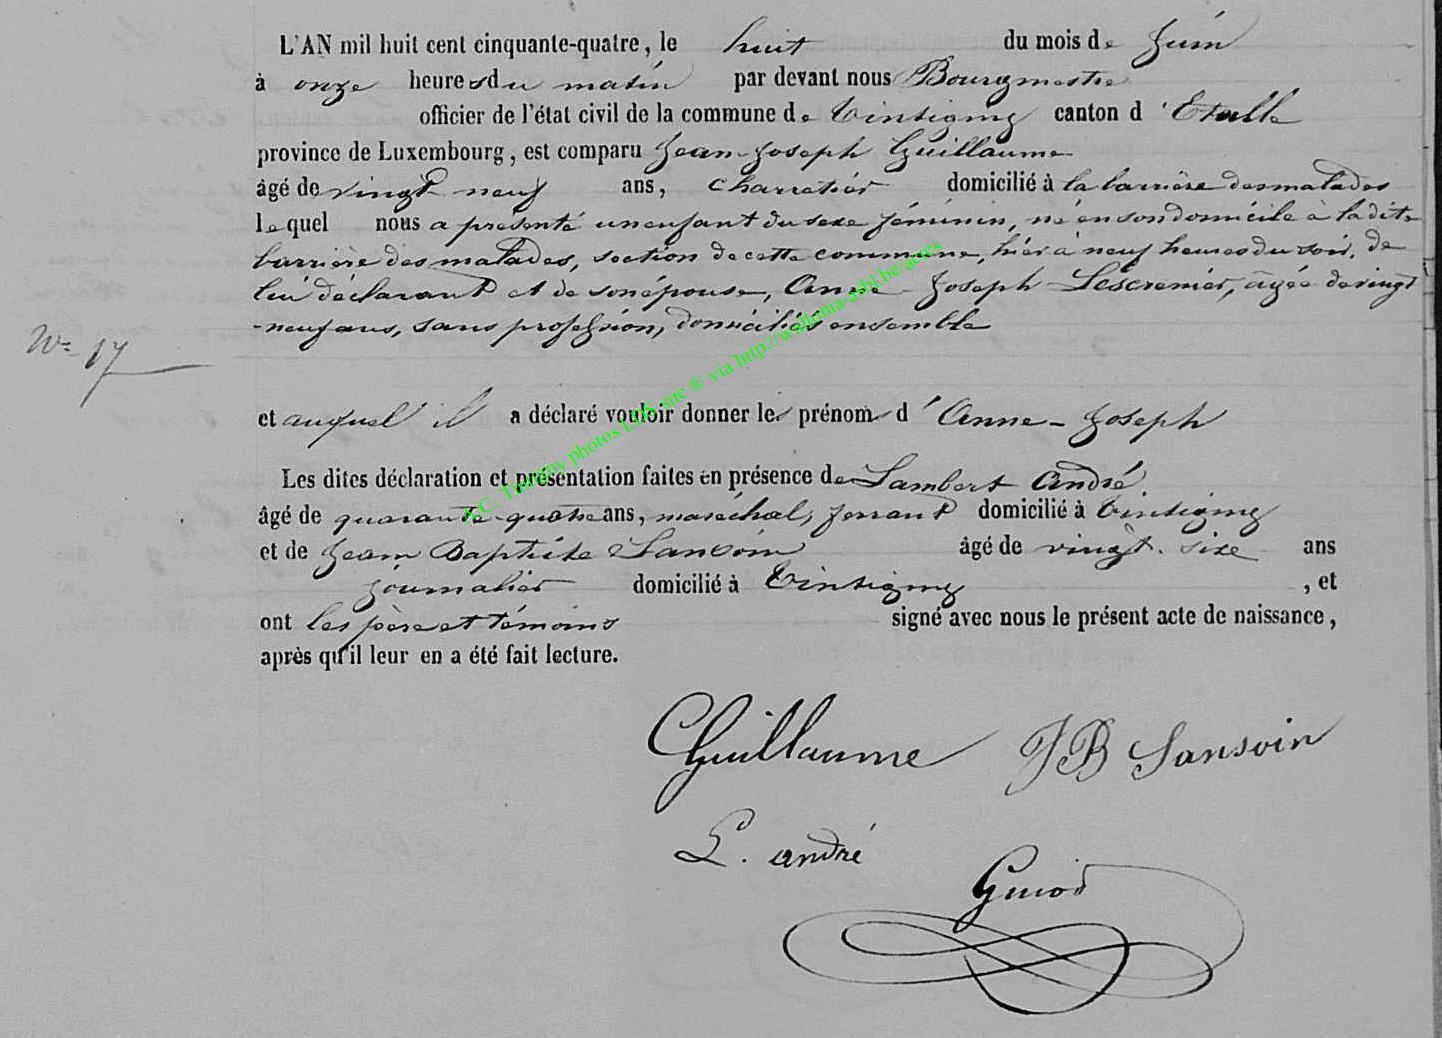 L'AN mil huit cent cinquante-quatre, le huit du mois de Juin
à onze heures du matin par devant nous Bourgmestre
officier de l'état civil de la commune de Tintigny canton d'Etalle
province de Luxembourg, est comparu Jean-Joseph Guillaume
âgé de vingt neuf ans, charretier domicilié à la barrière des malades
lequel nous a présenté un enfant du sexe féminin, né en son domicile à la dite
barrière des malades, section de cette commune, hier à neuf heures du soir, de
lui déclarant et de son épouse, Anne-Joseph Lescrenier, âgée de vingt
-neuf ans, sans profession, domiciliés ensemble
N° 17
et auquel il a déclaré vouloir donner les prénoms d'Anne-Joseph
Les dites déclaration et présentation faites en présence de Lambert André
âgé de quarante-quatre ans, maréchal, ferrant domicilié à Tintigny
et de Jean Baptiste Sansoin âgé de vingt-six ans
journalier domicilié à Tintigny, et
ont les père et témoins signé avec nous le présent acte de naissance,
après qu'il leur en a été fait lecture.
Guillaume JB Sansoin
L. andré
Guiot
A.C. Tintigny photos LDS site ® via http://wallonia-asbl.be/actes